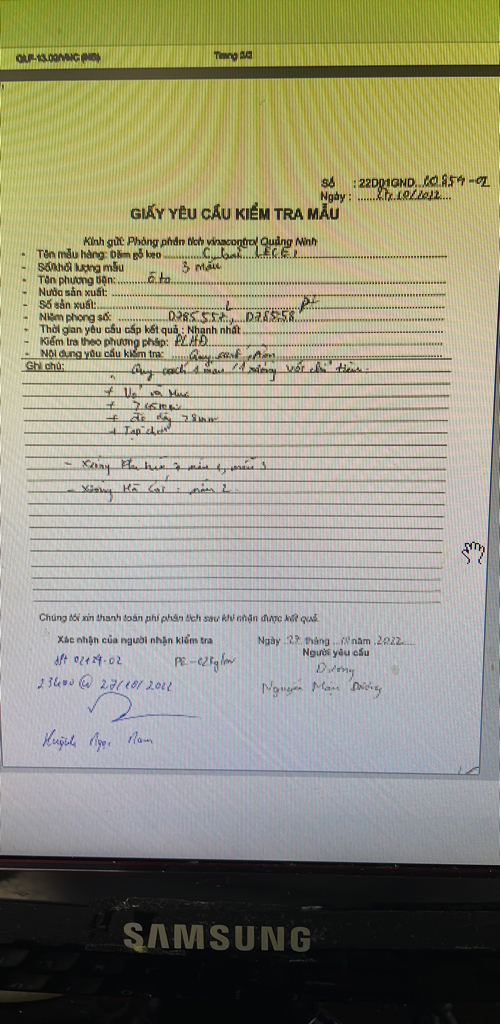 QLF-13.02/VNC (NB) Trang 2/2
Số : 22D01GND 00854-02
Ngày : 27/10/2022
GIẤY YÊU CẦU KIỂM TRA MẪU
Kính gửi: Phòng phân tích vinacontrol Quảng Ninh
- Tên mẫu hàng: Dăm gỗ keo
- Số/khối lượng mẫu 3 mẫu
- Tên phương tiện: ô tô
- Nước sản xuất:
- Số sản xuất:
- Niêm phong số: D785557, D78558
- Thời gian yêu cầu cấp kết quả : Nhanh nhất
- Kiểm tra theo phương pháp: PLHD
- Nội dung yêu cầu kiểm tra: Quy cách, ẩm
Ghi chú: Quy cách 1 mẫu / 1 xưởng với chỉ tiêu
+ Vỏ và Mục
+ độ dày 78mm
+ Tạp chất
- Xưởng
- Xưởng Hà Cối : mẫu 2
Chúng tôi xin thanh toán phí phân tích sau khi nhận được kết quả.
Xác nhận của người nhận kiểm tra Ngày 27 tháng 10 năm 2022
Người yêu cầu
02129-02 Dương
23h00 @ 27/10/2022 Nguyễn Mạn Dương
Huỳnh Ngọc Nam
SAMSUNG